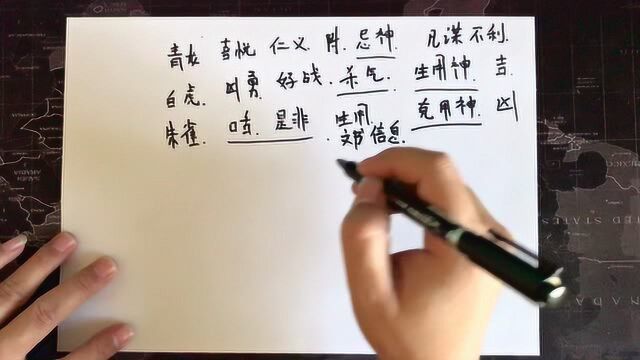 青龙 喜悦 仁义 忌神. 凡谋不利.
白虎. 凶勇 好战. 杀气. 生用神 吉.
朱雀. 口舌 是非 生用. 克用神 凶
文书信息.